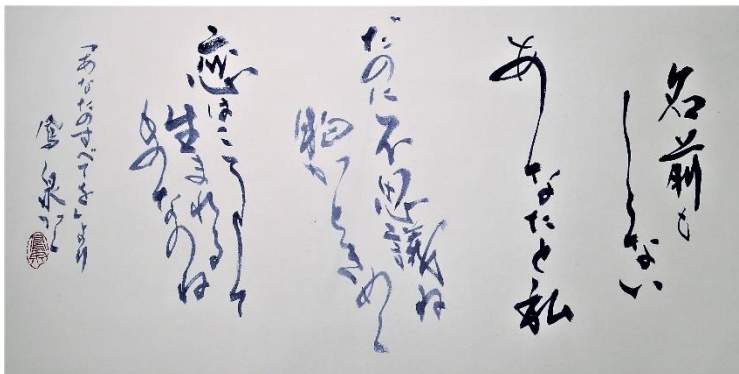 名前も
しらない
あなたと私
だのに不思議ね
胸がときめく
恋はこうして
生まれる
ものなのね
「あなたのすべてを」より
泉かく